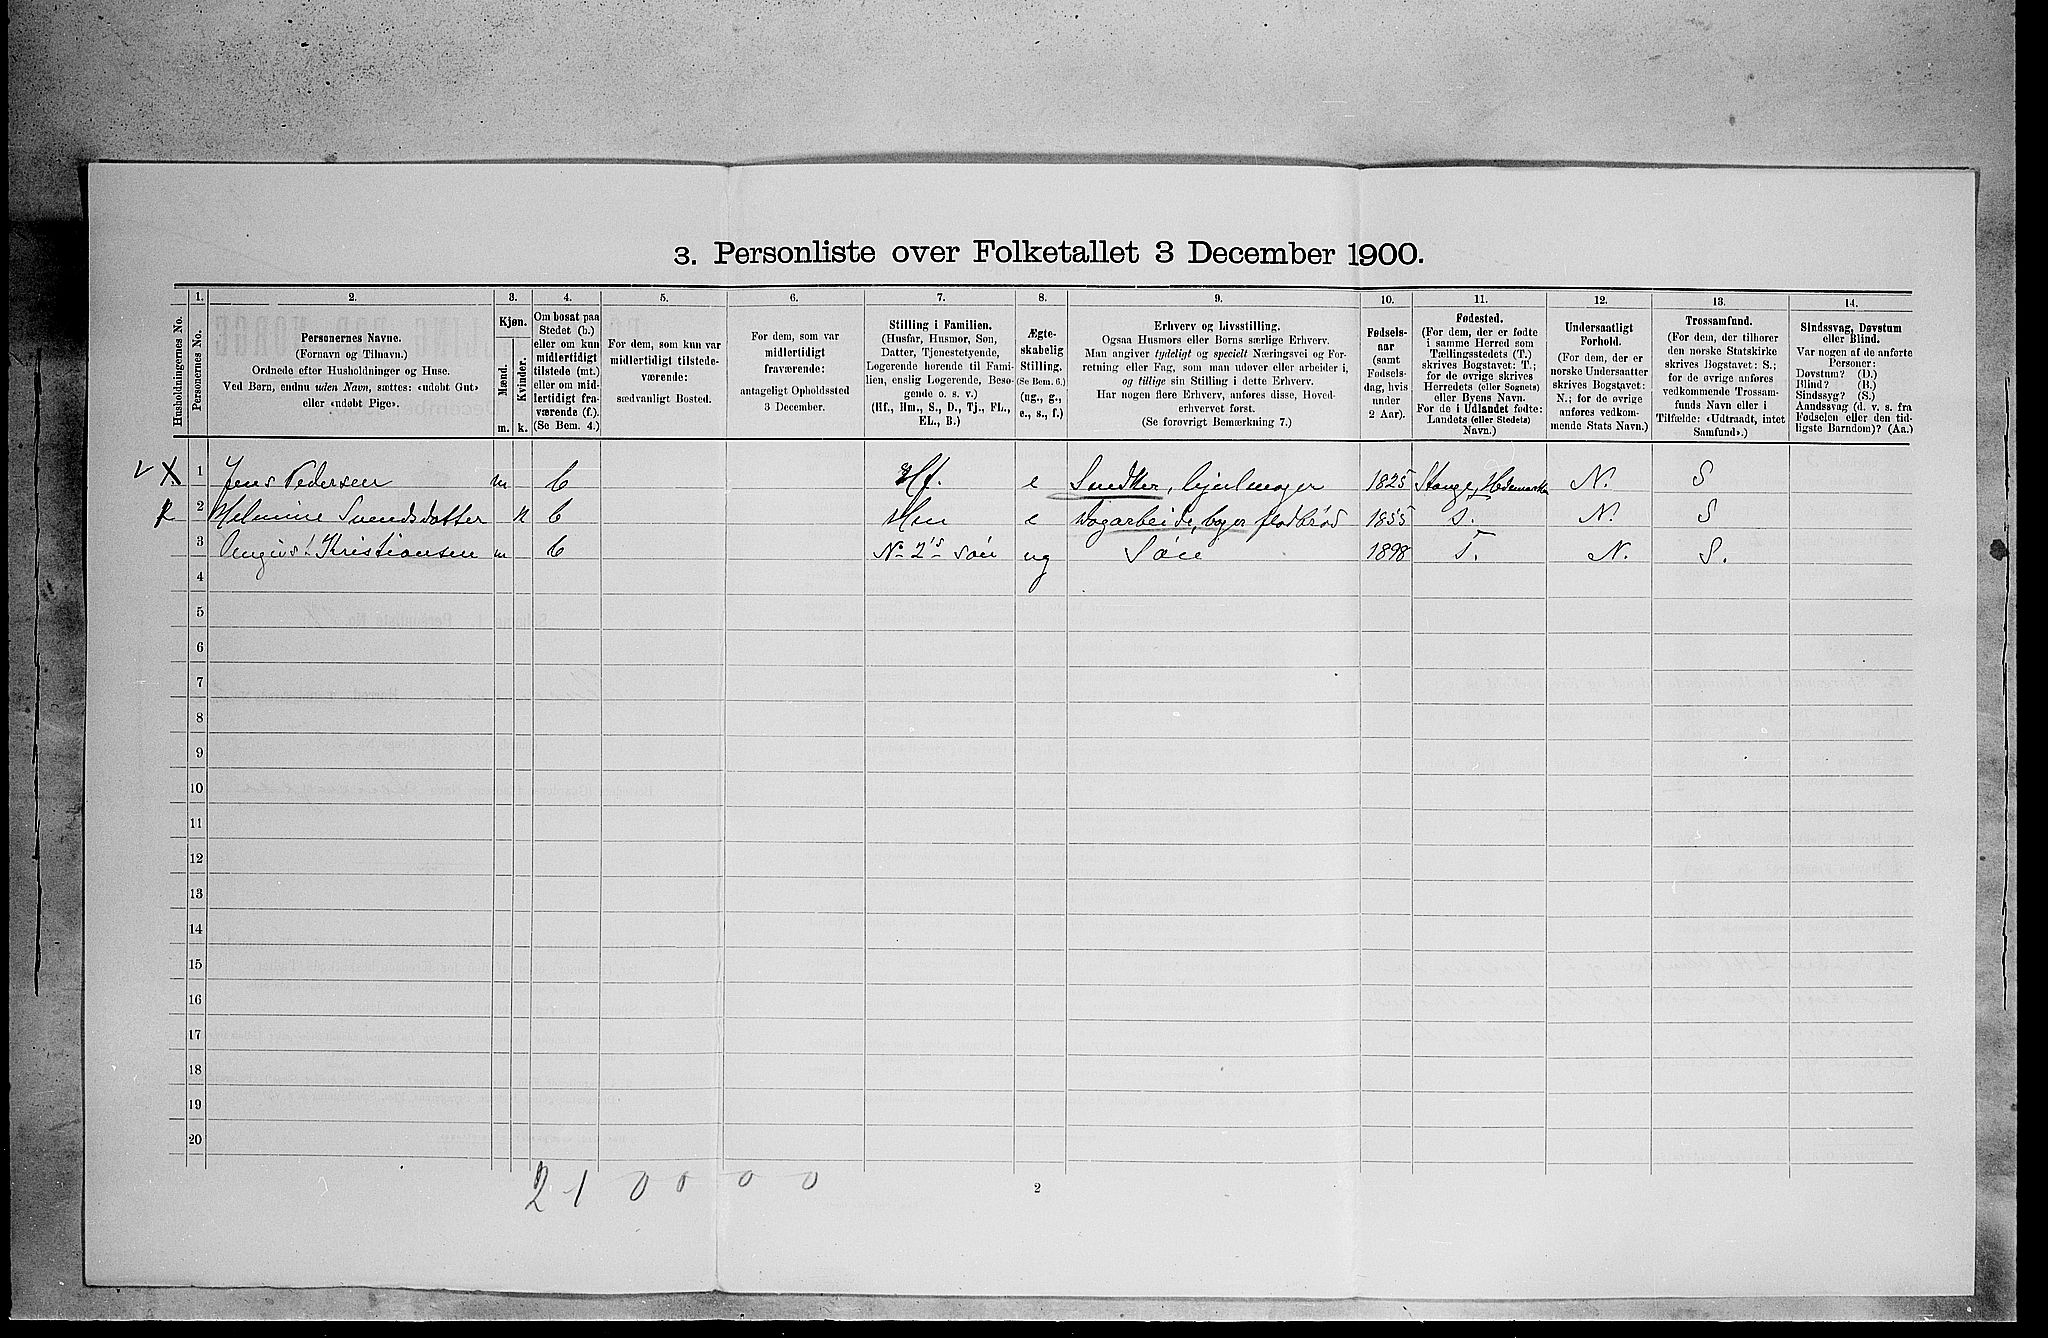 3. Personliste over Folketallet 3 December 1900.
Husholdningernes No.
1.
Personernes No.
2.
Personernes Navne.
(Fornavn og Tilnavn.)
Ordnede efter Husholdninger og Huse.
Ved Børn, endnu uden Navn, sættes: «udøbt Gut»
eller «udøbt Pige».
3.
Kjøn.
Mænd.
Kvinder.
m. k.
4.
Om bosat paa
Stedet (b.)
eller om kun
midlertidigt
tilstede (mt.)
eller om mid-
lertidigt fra-
værende (f.).
(Se Bem. 4.)
5.
For dem, som kun var
midlertidigt tilstede-
værende:
sædvanligt Bosted.
6.
For dem, som var
midlertidigt
fraværende:
antageligt Opholdssted
3 December.
7.
Stilling i Familien.
(Husfar, Husmor, Søn,
Datter, Tjenestetyende,
Logerende hørende til Fami-
lien, enslig Logerende, Besø-
gende o. s. v.)
(Hf., Hm., S., D., Tj., FL.,
EL., B.)
8.
Ægte-
skabelig
Stilling.
(Se Bem. 6.)
(ug., g.,
e., s., f.)
9.
Erhverv og Livsstilling.
Ogsaa Husmors eller Børns særlige Erhverv.
Man angiver tydeligt og specielt Næringsvei og For-
retning eller Fag, som man udøver eller arbeider i,
og tillige sin Stilling i dette Erhverv.
Har nogen flere Erhverv, anføres disse, Hoved-
erhvervet først.
(Se forøvrigt Bemærkning 7.)
10.
Fødsels-
aar
(samt
Fødsels-
dag, hvis
under
2 Aar).
11.
Fødested.
(For dem, der er fødte
i samme Herred som
Tællingsstedets (T.)
skrives Bogstavet: T.;
for de øvrige skrives
Herredets (eller Sognets)
eller Byens Navn.
For de i Udlandet fødte:
Landets (eller Stedets)
Navn.)
12.
Undersaatligt
Forhold.
(For dem, der er
norske Undersaatter
skrives Bogstavet:
N.; for de øvrige
anføres vedkom-
mende Stats Navn.)
13.
Trossamfund.
(For dem, der tilhører
den norske Statskirke
skrives Bogstavet: S.;
for de øvrige anføres
vedkommende Trossam-
funds Navn eller i
Tilfælde: «Udtraadt, intet
Samfund».)
14.
Sindssvag, Døvstum
eller Blind.
Var nogen af de anførte
Personer:
Døvstum? (D.)
Blind? (B.)
Sindssyg? (S.)
Aandssvag (d. v. s. fra
Fødselen eller den tid-
ligste Barndom)? (Aa.)
X 1 Jens Pedersen m b Hf. e Snedker, hjulmager 1825 Stange, Hedemarken N. S
2 Helmine Svendsdatter k b Hm e Dagarbeide, bager fladbrød 1855 N. S
3 August Kristiansen m b No 2's søn ug Søn 1898 T. N. S.
4
5
6
7
8
9
10
11
12
13
14
15
16
17
18
19
20
2 1 0 0 0 0
2